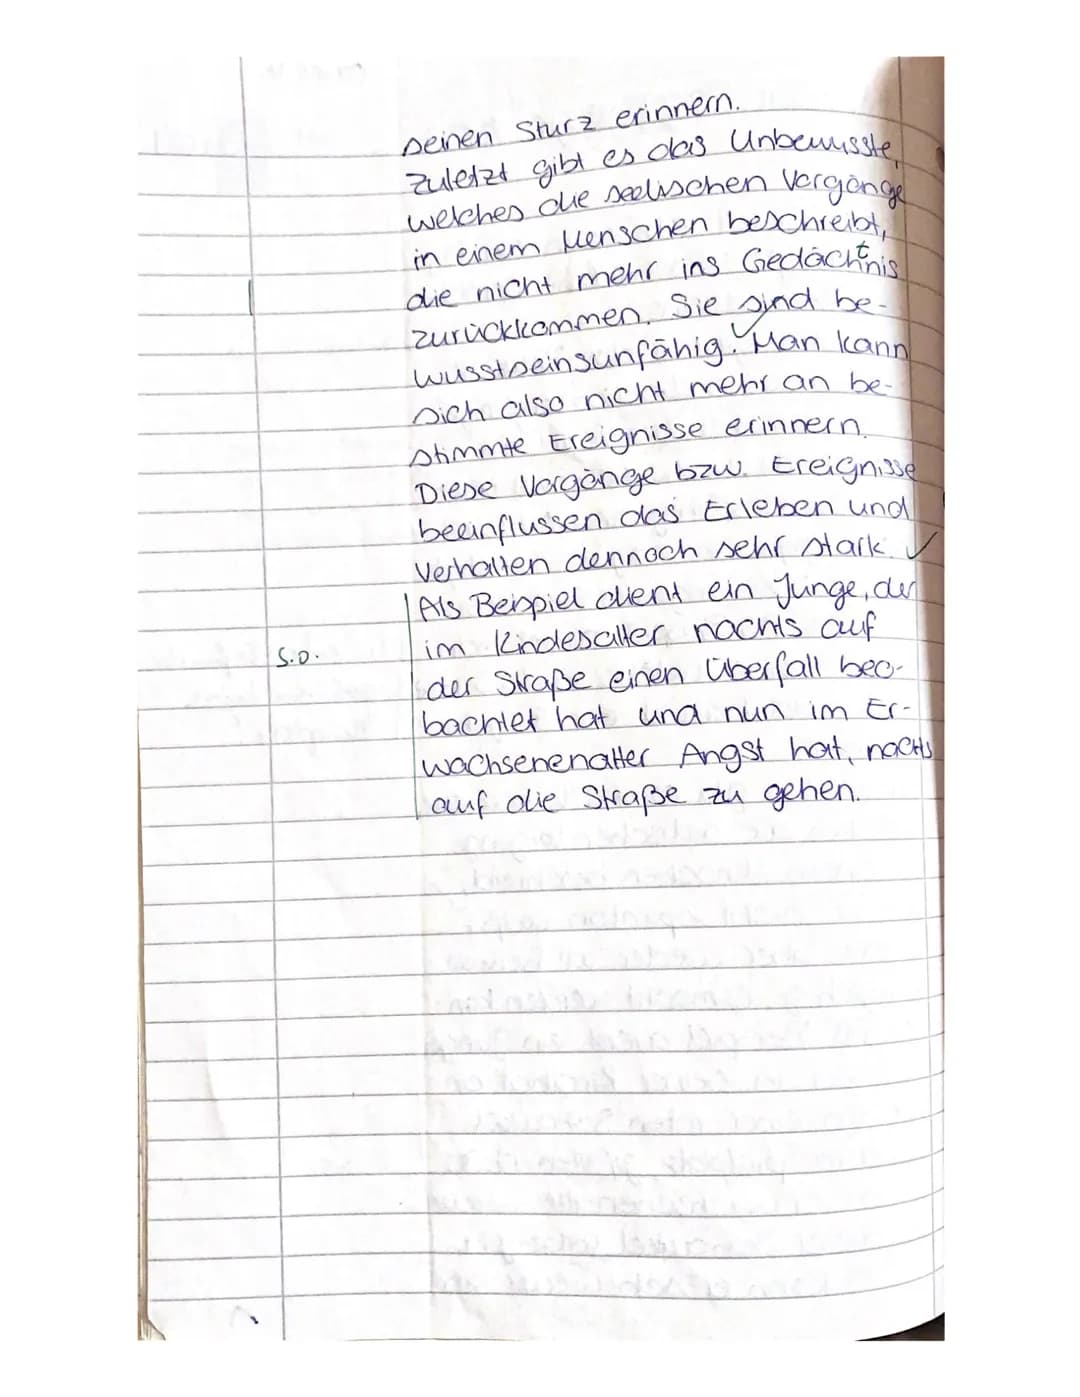 seinen Sturz erinnern.
Zuletzt gibt es das Unbewusste,
welches die seelischen Vorgänge
in einem Menschen beschreibt,
die nicht mehr ins Gedächtnis
zurückkommen. Sie sind be-
wusstseinsunfähig. Man kann
sich also nicht mehr an be-
stimmte Ereignisse erinnern.
Diese Vorgänge bzw. Ereignisse
beeinflussen das Erleben und
Verhalten dennoch sehr stark.
Als Beispiel dient ein Junge, der
im Kindesalter nachts auf
s.o.
der Straße einen Überfall beo-
bachtet hat und nun im Er-
wachsenenalter Angst hat, nachts
auf die Straße zu gehen.